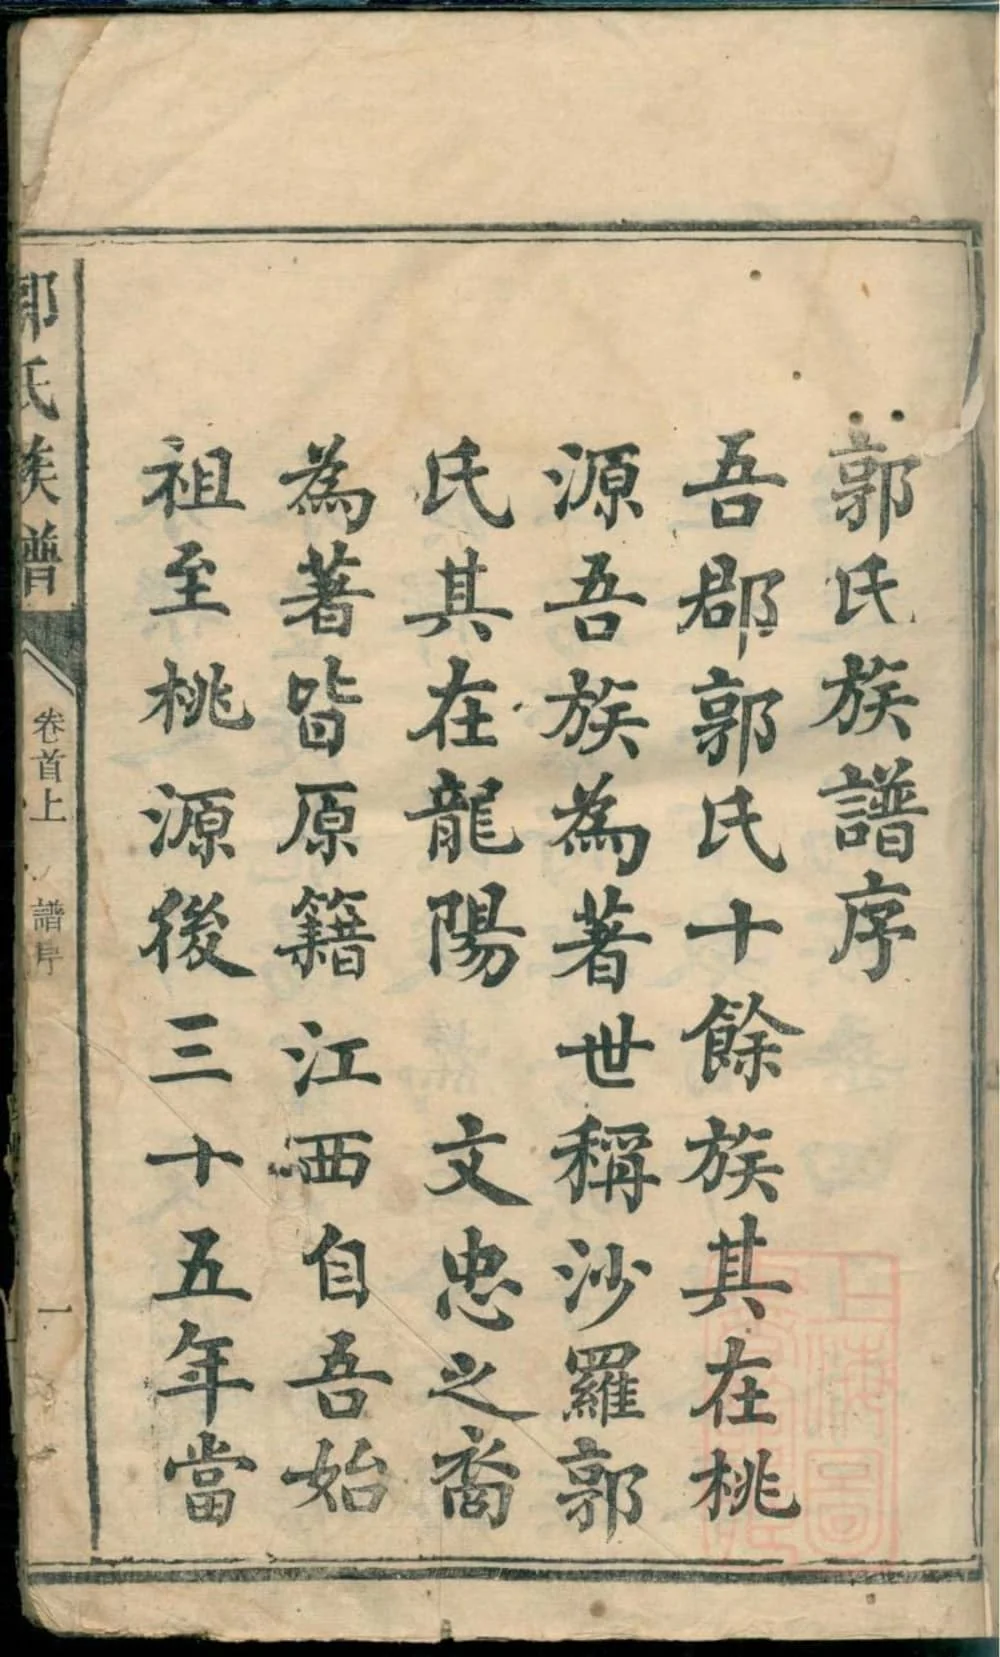 郭氏族譜序
吾郡郭氏十餘族其在桃
源吾族為著世稱沙羅郭
氏其在龍陽　文忠之裔
為著皆原籍江西自吾始
祖至桃源後三十五年當
郭氏族譜
卷首上
譜序
一